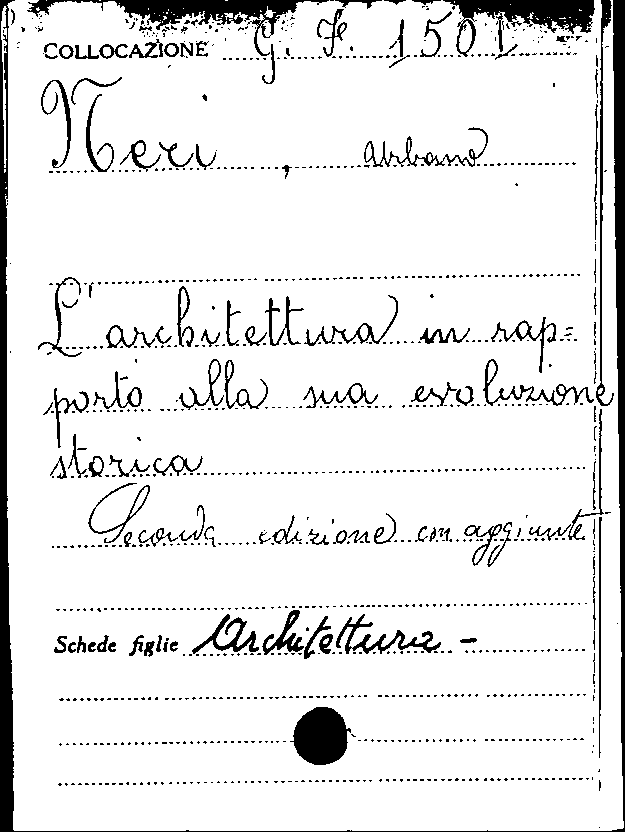 COLLOCAZIONE G. F. 1501
Neri, Urbano
L'architettura in rap=
porto alla sua evoluzione
storica
Seconda edizione con aggiunte
Schede figlie Architettura -